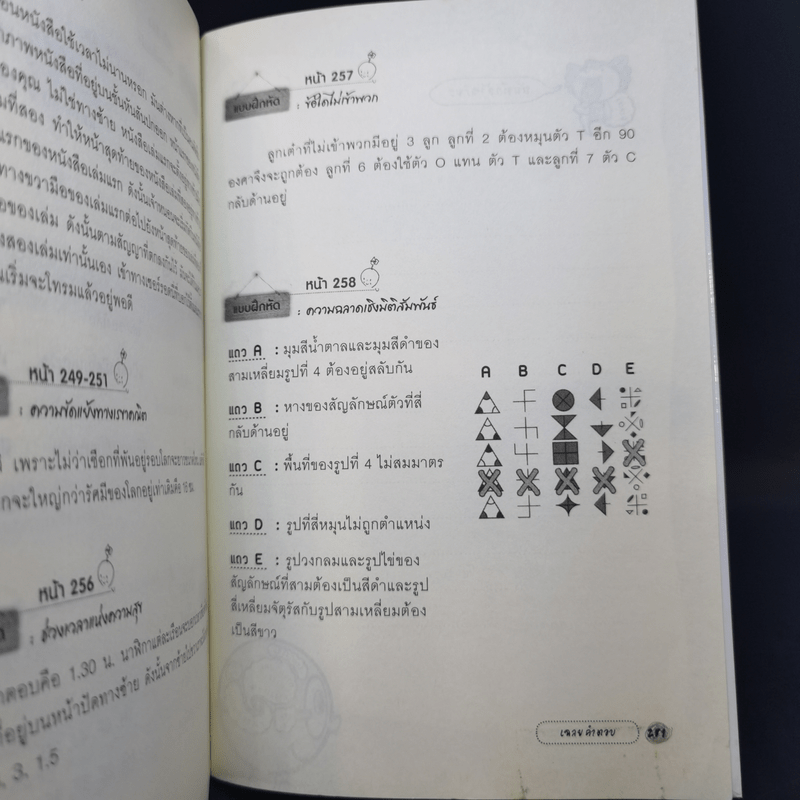 นหนังสือใช้เวลาไม่นานหรอก
ภาพหนังสือที่อยู่บนชั้นหันสันปกออก
องคุณ ไม่ใช่ทางซ้าย
มที่สอง ทำให้หน้าสุดท้ายของหนังสือ
แรกของหนังสือเล่มแรก
ทางขวามือของเล่มแรกต่อไปยังหน้าสุดท้าย
ของเล่ม ดังนั้นตามสัญญาที่ตกลงกันไว้
งสองเล่มเท่านั้นเอง
นเริ่มจะโทรมแล้วอยู่พอดี
หน้า 249-251
: ความขัดแย้งทางเรขาคณิต
เพราะไม่ว่าเชือกที่พันอยู่รอบโลกจะยาว
กจะใหญ่กว่ารัศมีของโลกอยู่เท่าเดิมคือ
หน้า 256
: ช่วงเวลาแห่งความสุข
ตอบคือ 1.30 น. นาฬิกาแต่ละเรือน
ที่อยู่บนหน้าปัดทางซ้าย
, 3, 1.5
หน้า 257
แบบฝึกหัด : ข้อใดไม่เข้าพวก
ลูกเต๋าที่ไม่เข้าพวกมีอยู่ 3 ลูก ลูกที่ 2 ต้องหมุนตัว T อีก 90
องศาจึงจะถูกต้อง ลูกที่ 6 ต้องใช้ตัว O แทน ตัว T และลูกที่ 7 ตัว C
กลับด้านอยู่
หน้า 258
แบบฝึกหัด : ความฉลาดเชิงมิติสัมพันธ์
แถว A : มุมสีน้ำตาลและมุมสีดำของ
สามเหลี่ยมรูปที่ 4 ต้องอยู่สลับกัน
แถว B : หางของสัญลักษณ์ตัวที่สี่
กลับด้านอยู่
แถว C : พื้นที่ของรูปที่ 4 ไม่สมมาตร
กัน
แถว D : รูปที่สี่หมุนไม่ถูกตำแหน่ง
แถว E : รูปวงกลมและรูปไข่ของ
สัญลักษณ์ที่สามต้องเป็นสีดำและรูป
สี่เหลี่ยมจัตุรัสกับรูปสามเหลี่ยมต้อง
เป็นสีขาว
A B C D E
เฉลยคำตอบ 281